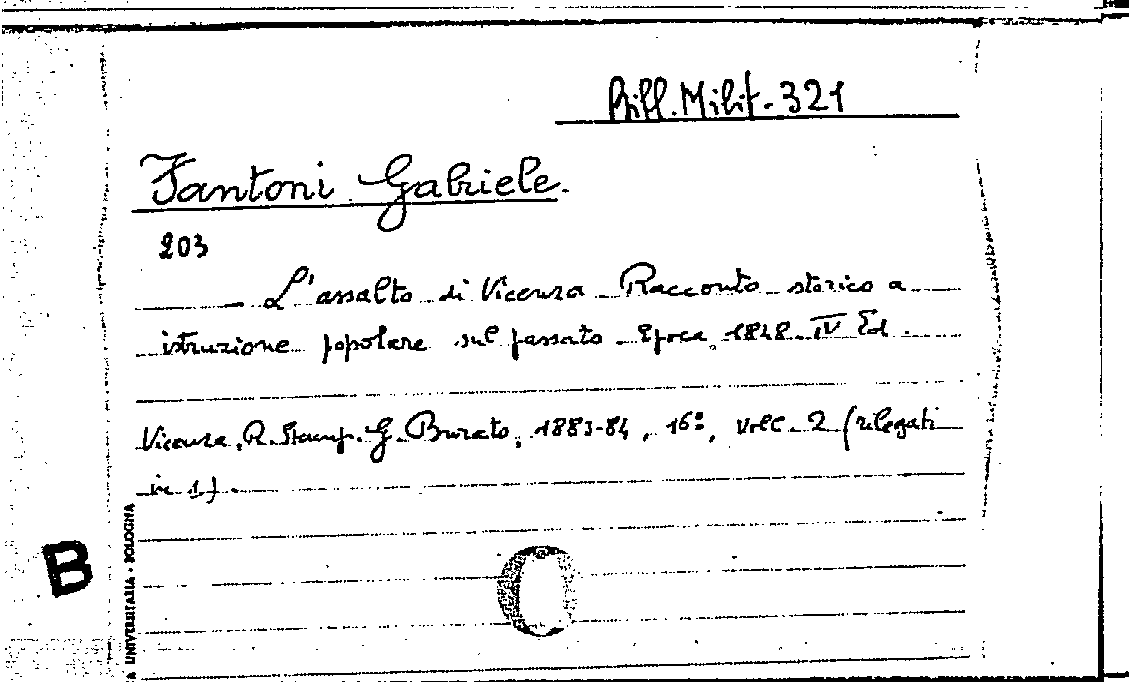 Bibl. Milit. 321
Fantoni Gabriele.
203
- L'assalto di Vicenza Racconto storico a
istruzione popolare sul passato Epoca, 1848 IV Ed.
Vicenza, R. Stamp. G. Burato, 1883-84, 16°, voll. 2 (rilegati
in 1).
B
A UNIVERSITARIA - BOLOGNA